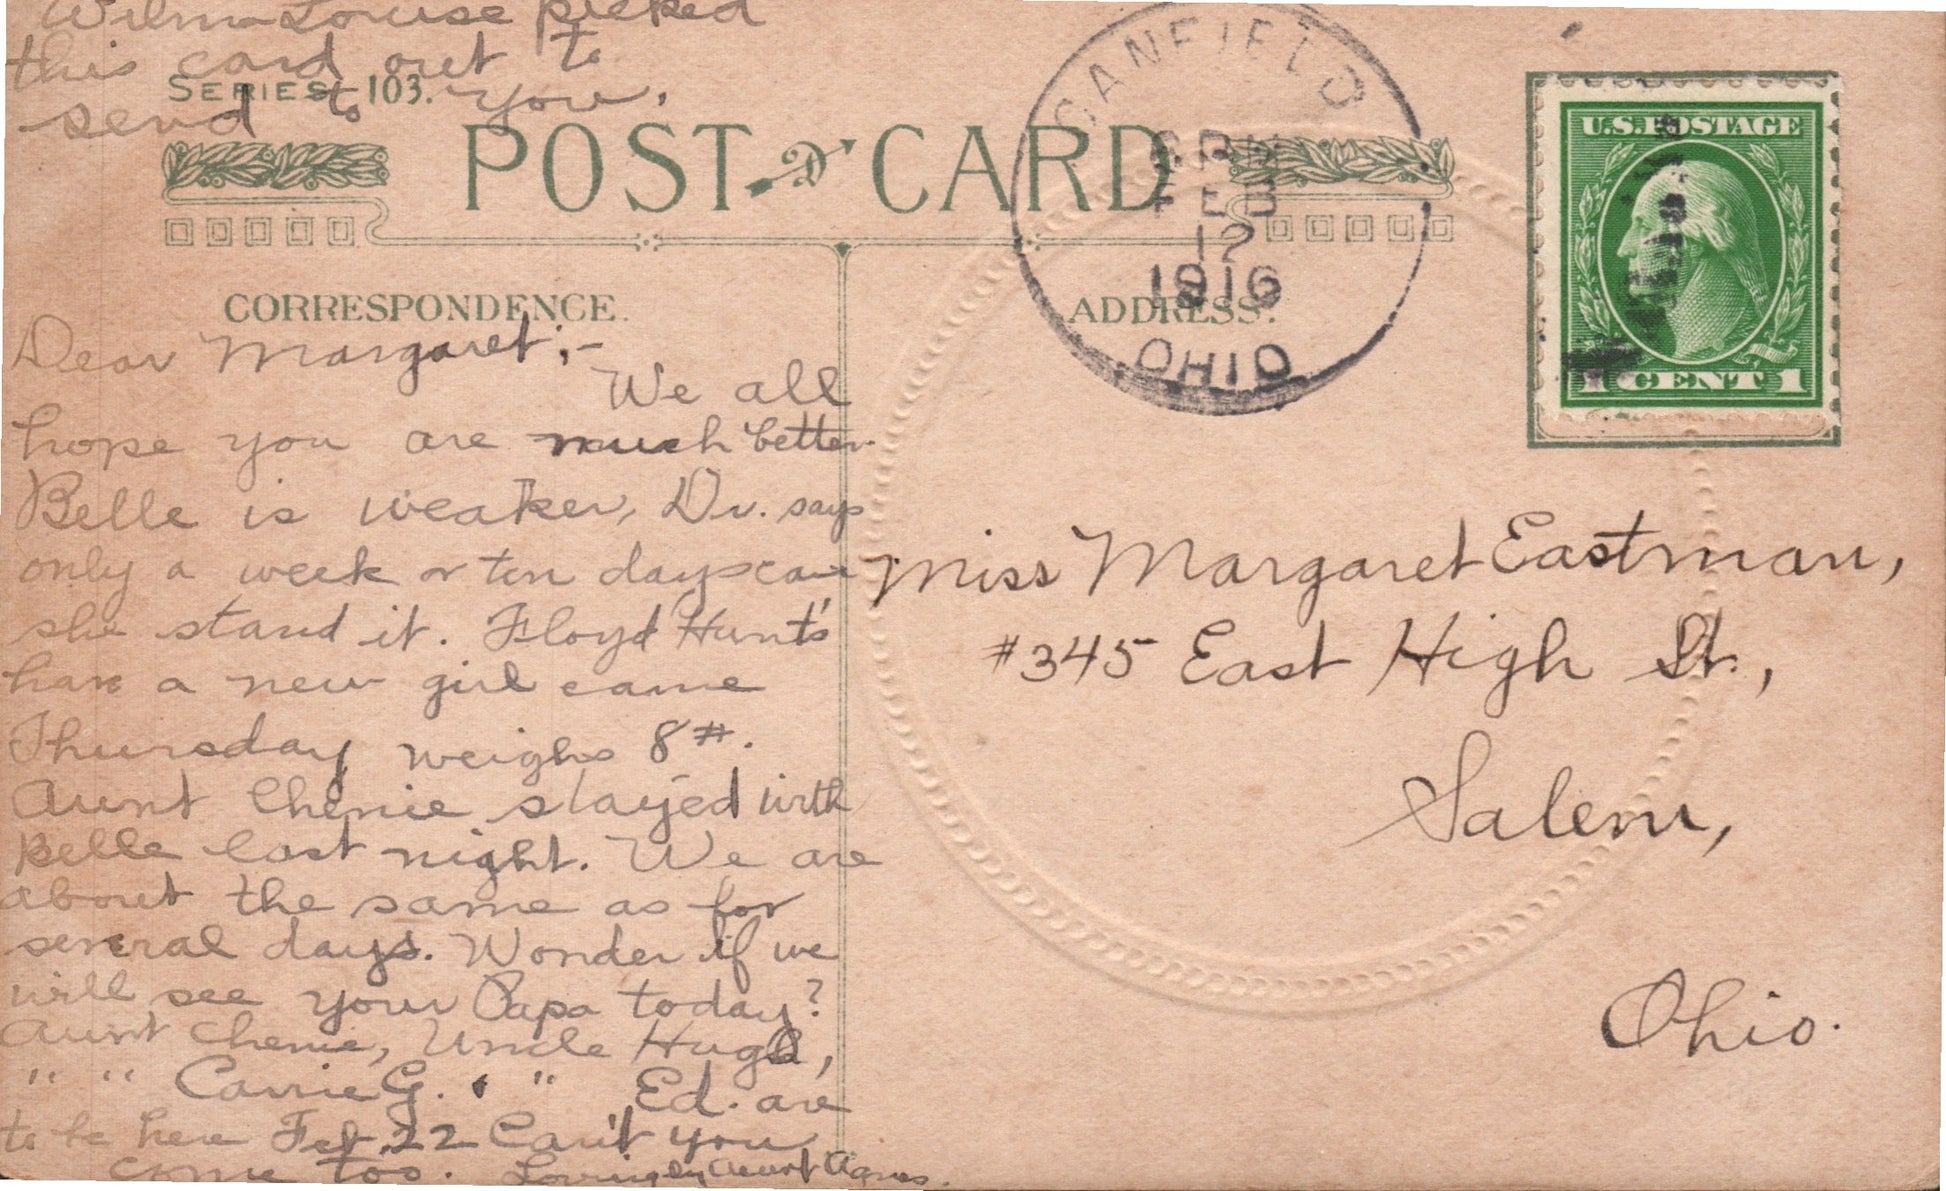 Wilma Louise picked
this card out to
send to you.
SERIES 103.
POST CARD
CORRESPONDENCE.
Dear Margaret;-
We all
hope you are much better.
Belle is weaker, Dr. says
only a week or ten days can
she stand it. Floyd Hunt's
have a new girl came
Thursday weighs 8#.
Aunt Chenie stayed with
Belle last night. We are
about the same as for
several days. Wonder if we
will see your Papa today?
Aunt Chenie, Uncle Hugh,
" " Carrie G. & " Ed. are
to be here Feb. 22 Can't you
come too. Lovingly Aunt Agnes.
CANFIELD
6 PM
FEB
12
1916
OHIO
ADDRESS.
U.S. POSTAGE
1 CENT 1
Miss Margaret Eastman,
#345 East High St.,
Salem,
Ohio.